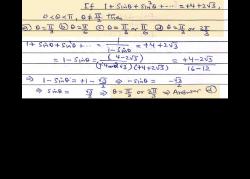 If 1 + sinθ + sin²θ + ... = +4+2√3,
0 < θ < π, θ ≠ π/2 then
a) θ = π/3 b) θ = π/6 c) θ = π/3 or π/6 d) θ = π/3 or 2π/3
1 + sinθ + sinθ + ... = 1/(1-sinθ) = +4+2√3
⇒ 1 - sinθ = (4-2√3)/((4-2√3)(+4+2√3)) = (+4-2√3)/(16-12)
⇒ 1 - sinθ = +1 - √3/2 ⇒ -sinθ = -√3/2
⇒ sinθ = √3/2 ⇒ θ = π/3 or 2π/3 ⇒ Answer d)